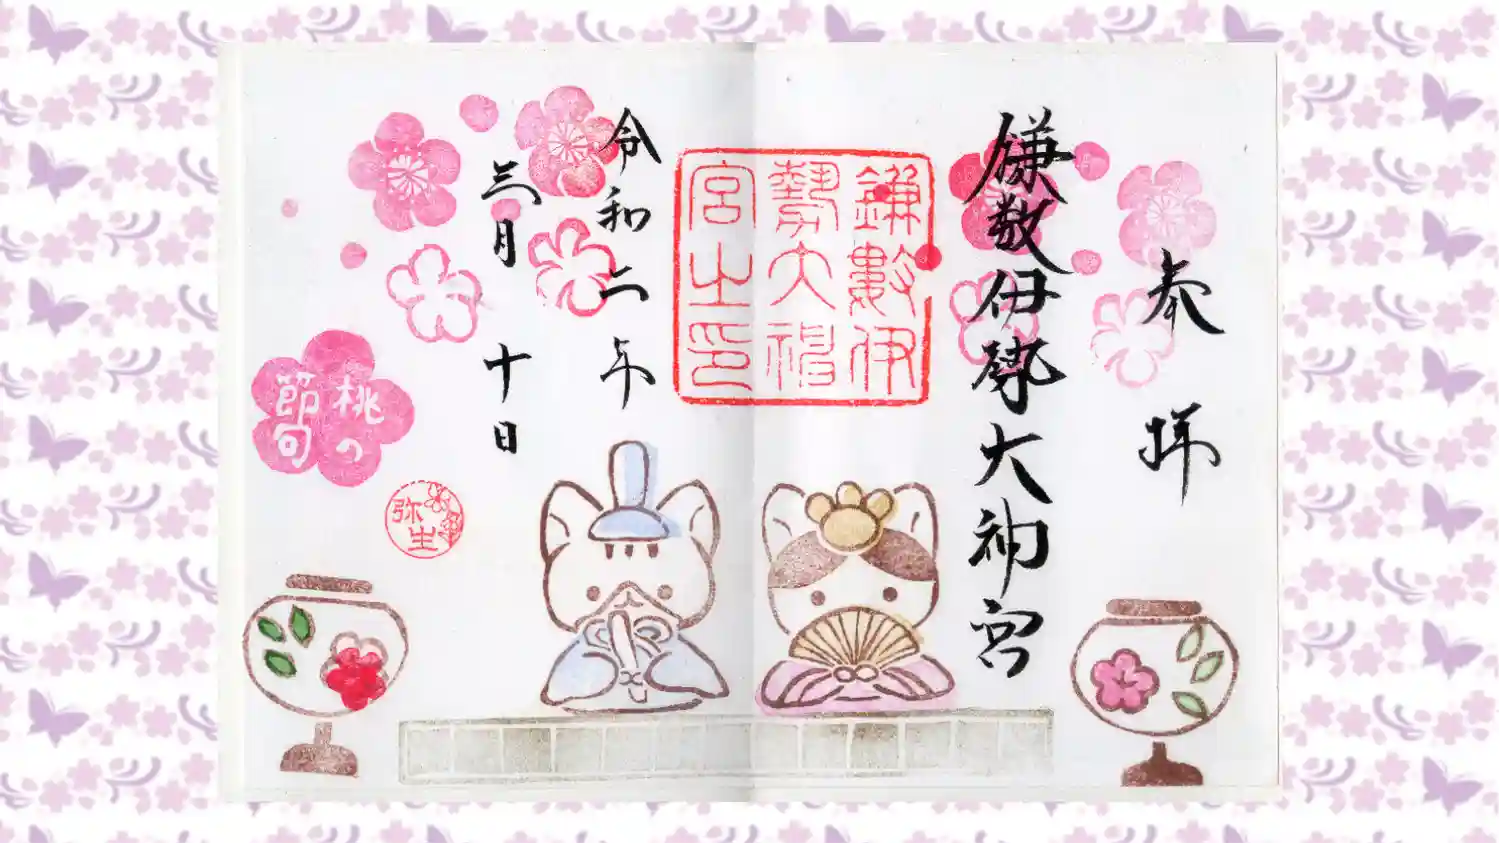 奉拝
鎌数伊勢大神宮
鎌數伊
勢大神
宮之印
令和二年
三月十日
桃の
節句
弥生